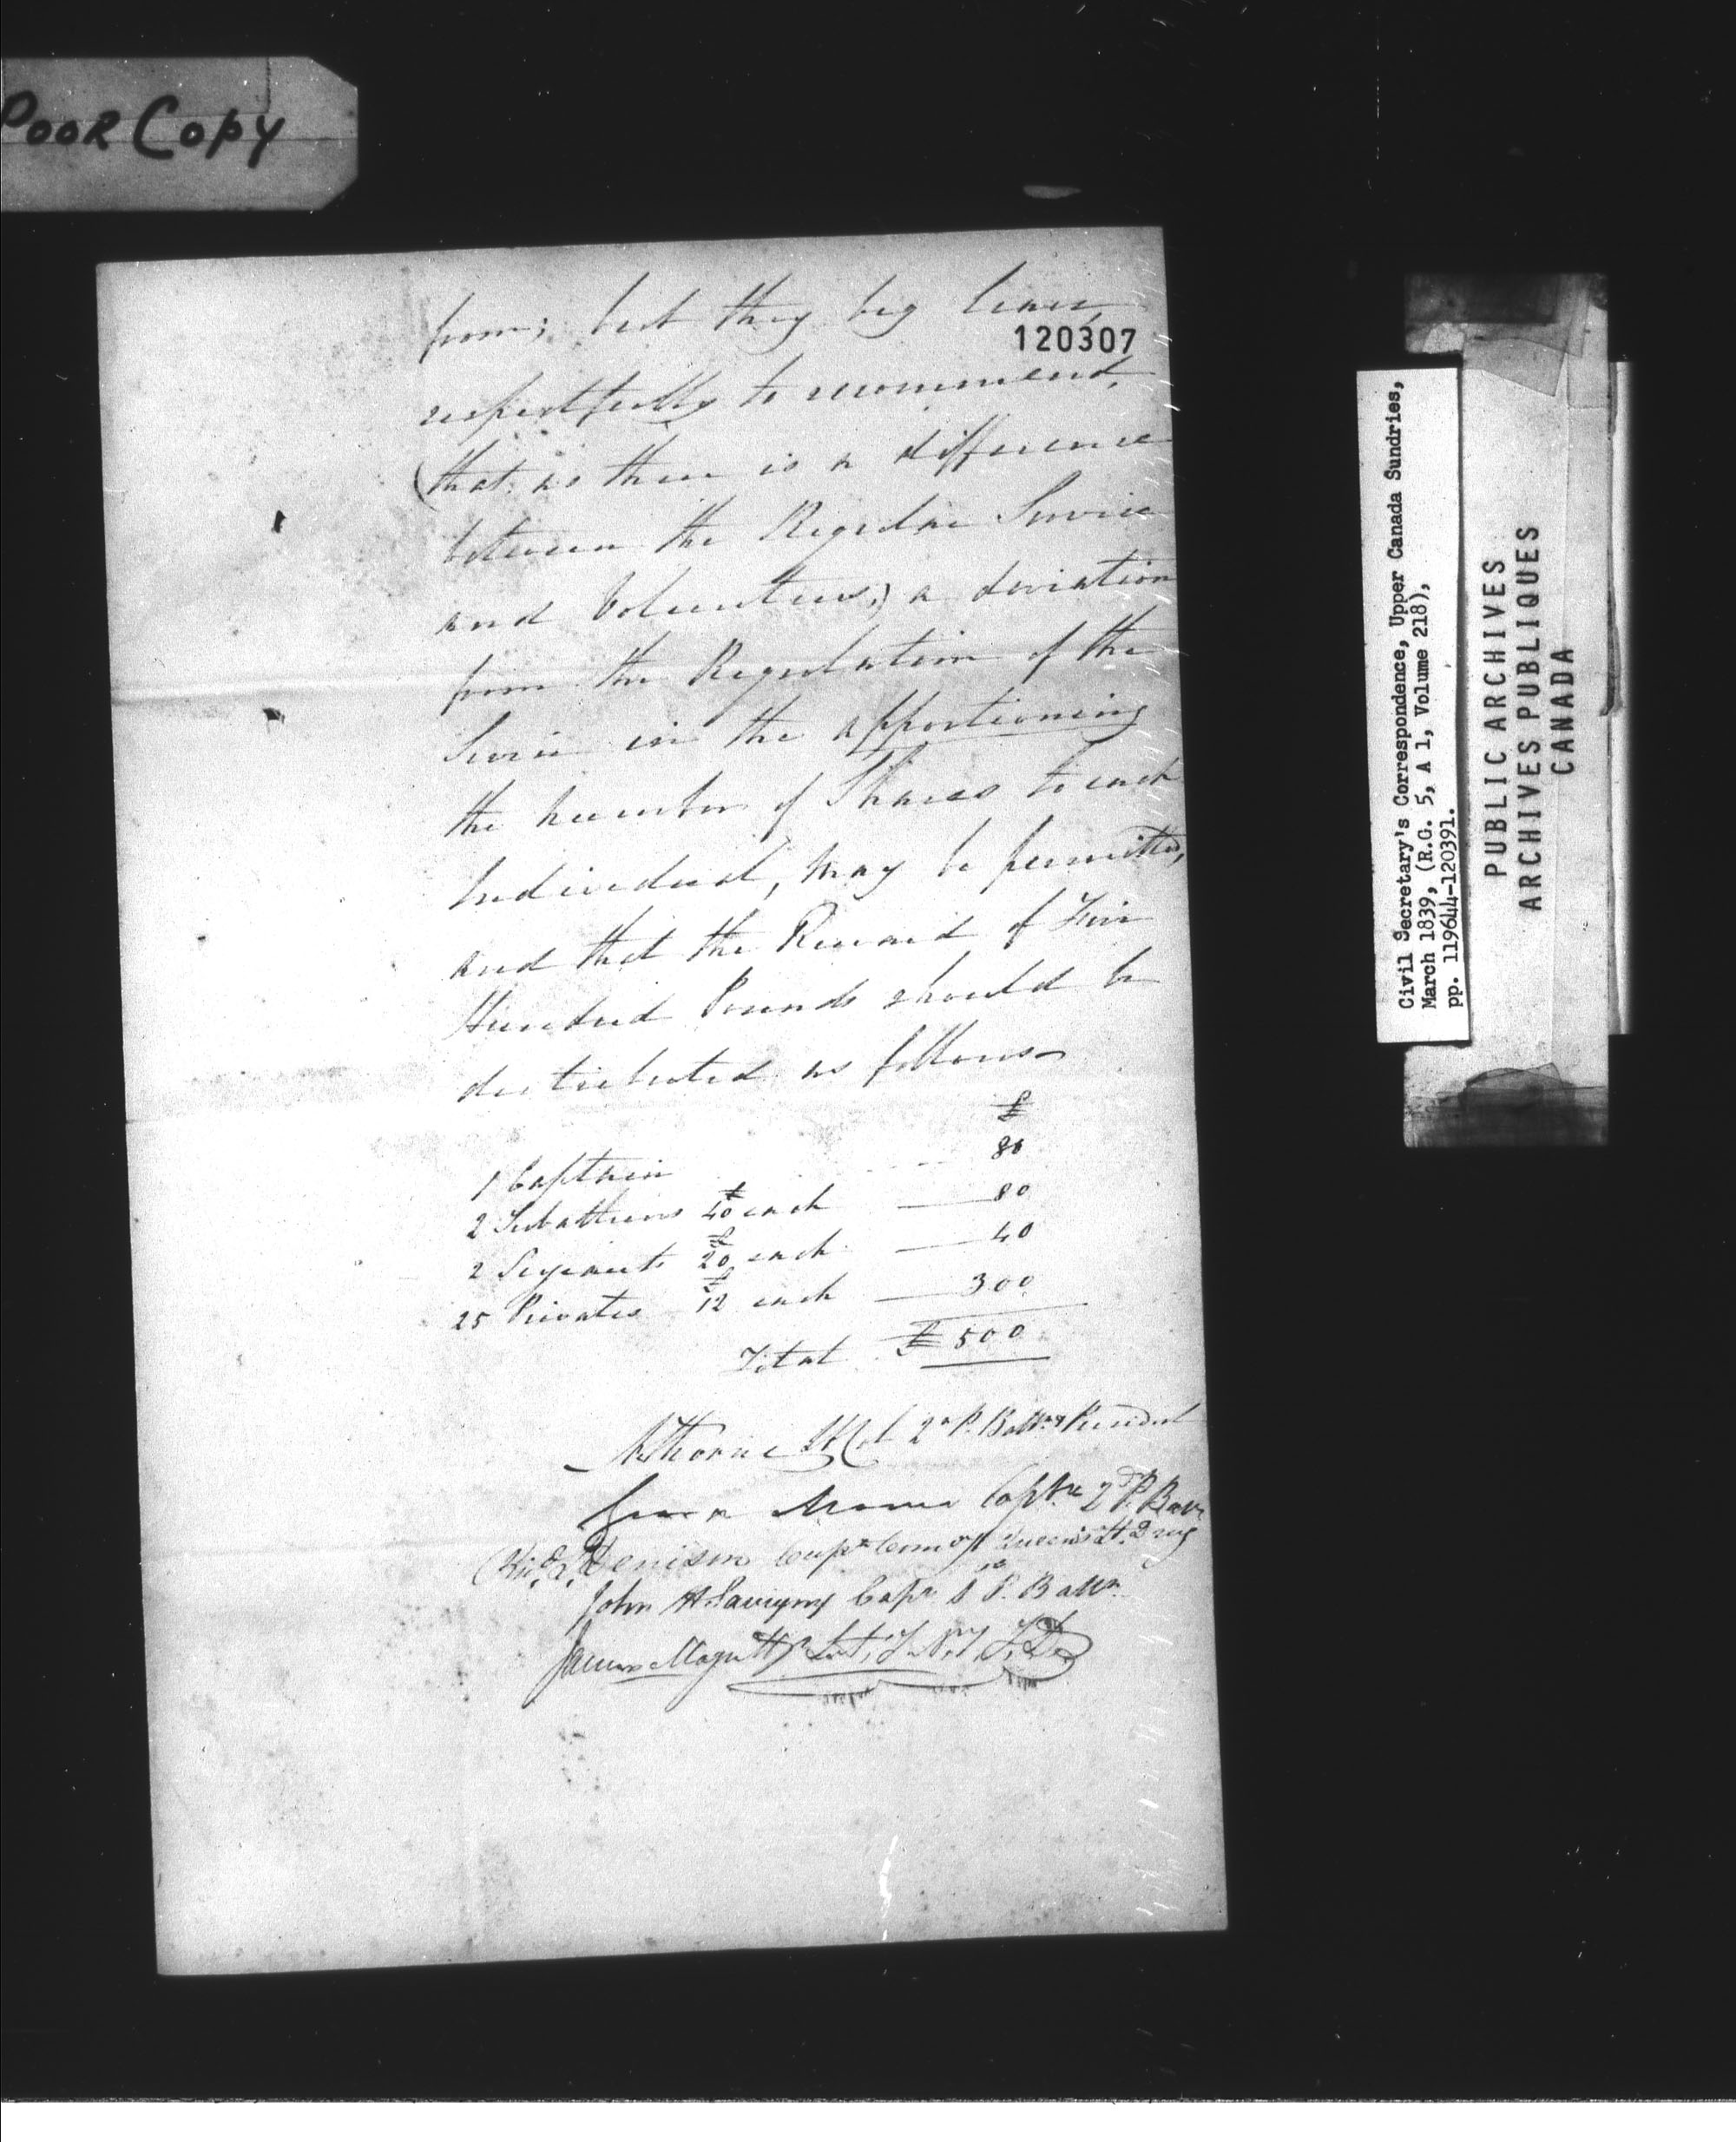 POOR COPY
from; but they beg leave,
120307
respectfully to recommend,
(that as there is a difference
between the Regular Service
and Volunteers,) a deviation
from the Regulation of the
Service in the apportioning
the number of Shares to each
Individual, may be permitted,
and that the Reward of Five
Hundred Pounds should be
distributed as follows
£
1 Captain 80
2 Subalterns £40 each 80
2 Sergeants £20 each 40
25 Privates £12 each 300
Total £500
Thorne Lt Col 2d P. Battn & President
Captn 2d P. Battn
Richd L. Denison Capt Comg Queens Lt. Drag
John H Savigny Capt 1st P. Battn
James Magrath
Civil Secretary's Correspondence, Upper Canada Sundries,
March 1839, (R.G. 5, A 1, Volume 218),
pp. 119644-120391.
PUBLIC ARCHIVES
ARCHIVES PUBLIQUES
CANADA